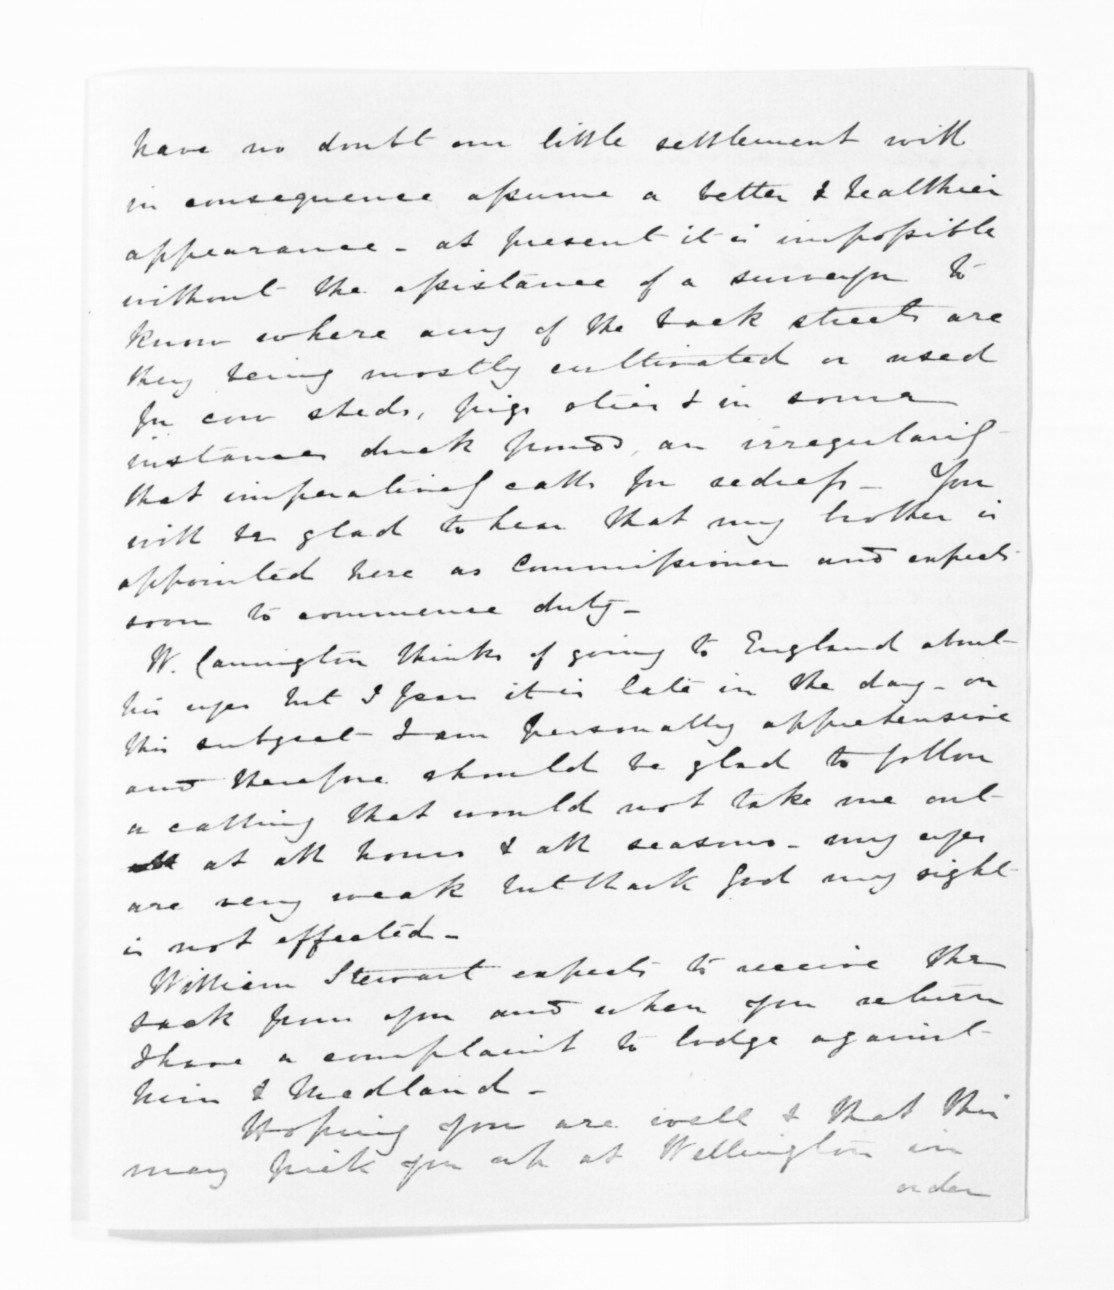 have no doubt our little settlement will
in consequence assume a better & healthier
appearance - at present it is impossible
without the assistance of a surveyor to
know where any of the back streets are
they being mostly cultivated or used
for cow sheds, pigs sties & in some
instances duck ponds, an irregularity
that imperatively calls for redress - You
will be glad to hear that my brother is
appointed here as Commissioner and expects
soon to commence duty -
W. Cannington thinks of going to England about
his eyes but I fear it is late in the day - on
this subject I am personally apprehensive
and therefore should be glad to follow
a calling that would not take me out
at all hours & all seasons - my eyes
are very weak but thank God my sight
is not effected -
William Stewart expects to receive the
sack from you and when you return
I have a complaint to lodge against
him & Medland -
Hoping you are well & that this
may pick you up at Wellington in
order